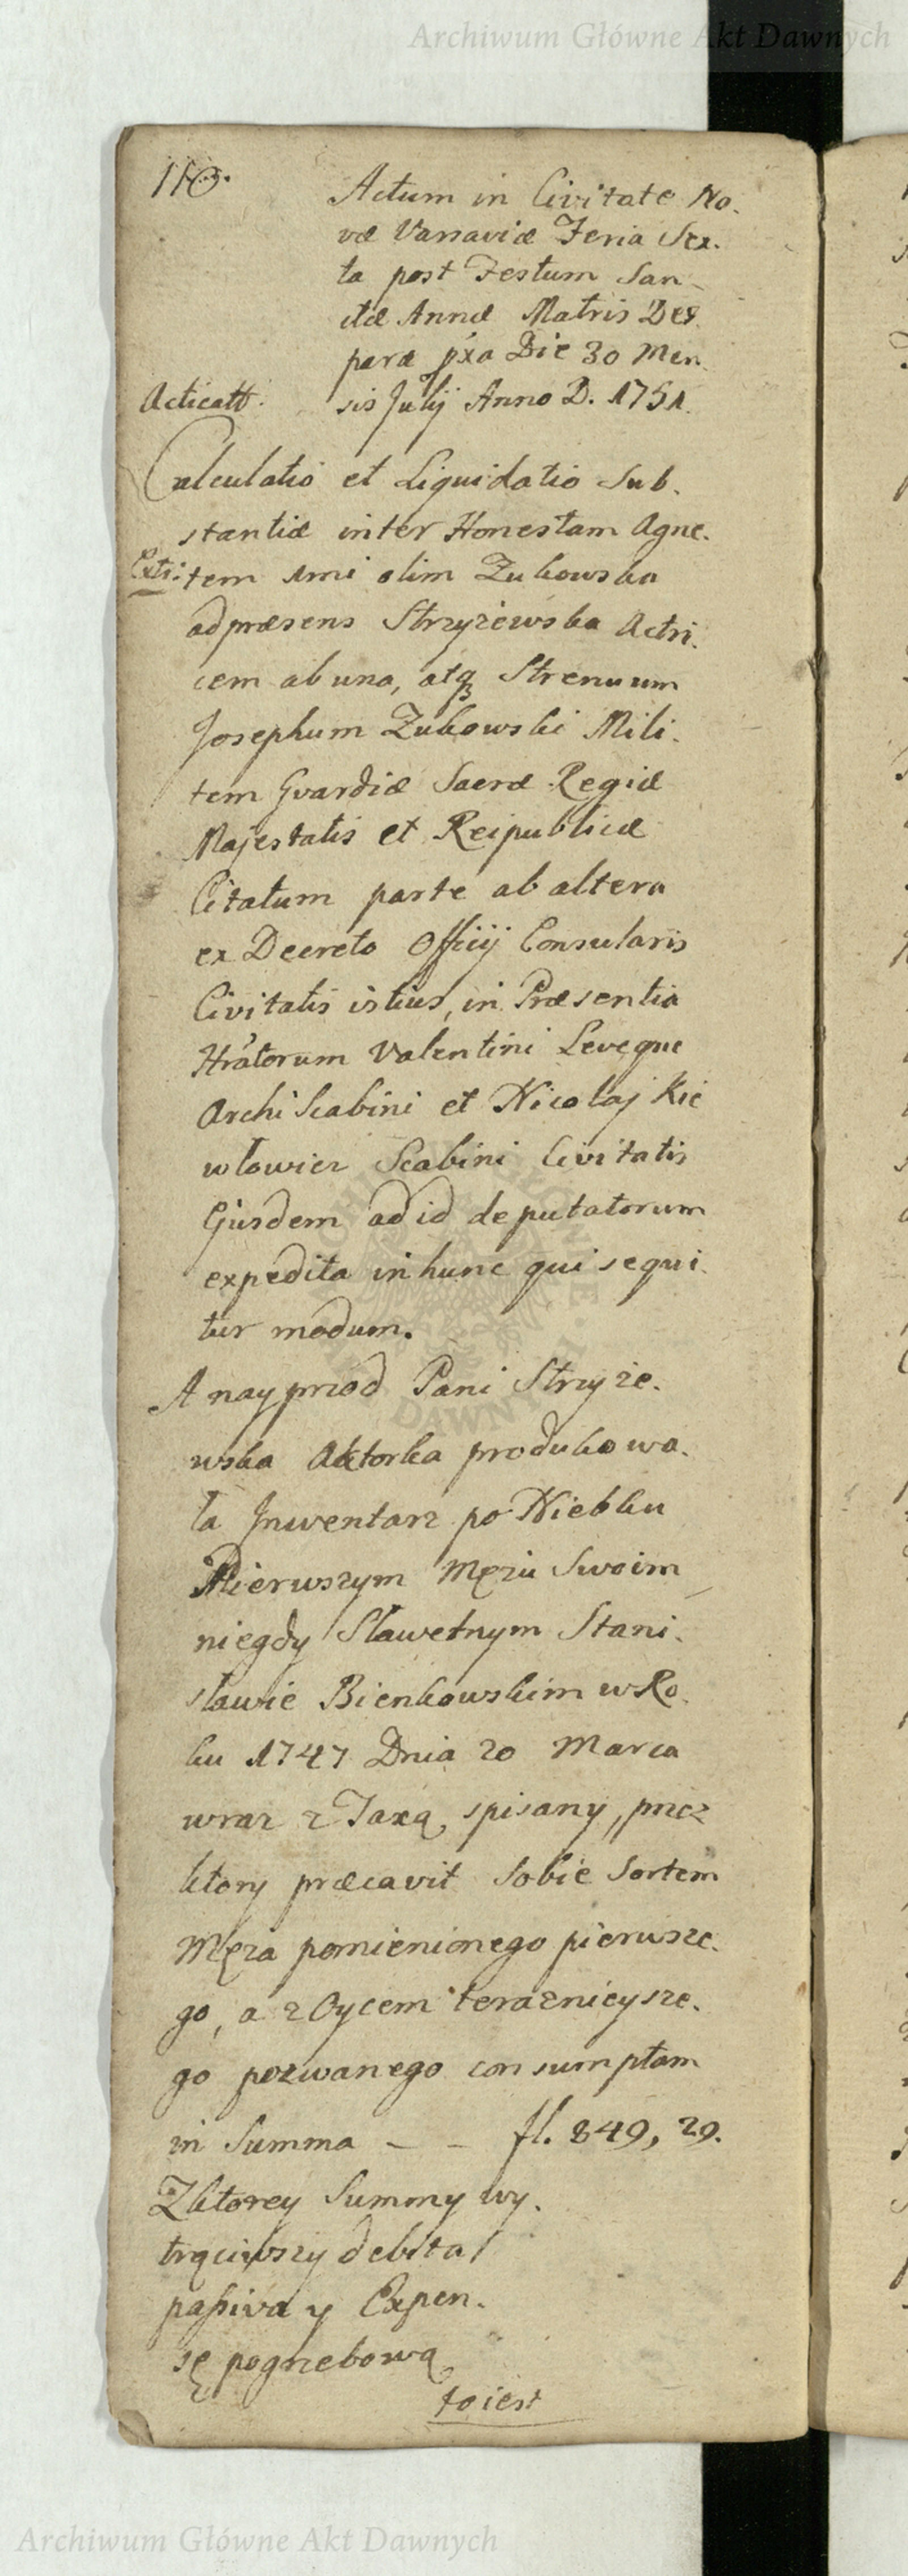 Archiwum Główne Akt Dawnych
110.
Actum in Civitate No.
væ Varsaviæ Feria Sex.
ta post Festum San
ctæ Annæ Matris Dei
paræ pxa Die 30 Men
sis Julij Anno D. 1751.
Acticatt.
Calculatio et Liquidatio Sub.
stantiæ inter Honestam Agne.
Extr:
tem 1mi olim Zukowska
ad præsens Stryżewska Actri.
cem ab una, atq3 Strenuum
Josephum Zukowski Mili.
tem Gvardiæ Sacræ Regiæ
Majestatis et Reipublicæ
Citatum parte ab altera
ex Decreto Officij Consularis
Civitatis istius, in Præsentia
Hratorum Valentini Leveque
Archi Scabini et Nicolaj Kie
włowicz Scabini Civitatis
Ejusdem ad id deputatorum
expedita in hunc qui sequi.
tur modum.
A nayprzod Pani Stryże.
wska Aktorka produkowa.
ła Jnwentarz po Niebku
Pierwszym Mężu Swoim
niegdy Sławetnym Stani.
sławie Bienkowskim w Ro.
ku 1747 Dnia 20 Marca
wraz z Taxą spisany, przez
ktory præcavit sobie Sortem
Męża pomienionego pierwsze.
go, a z Oycem teraznieysze.
go pozwanego consumptam
in Summa - - fl. 849, 29.
Zktorey Summy wy.
trąciwszy debita
paßiva y Expen.
sę pogrzebową
to iest
Archiwum Główne Akt Dawnych